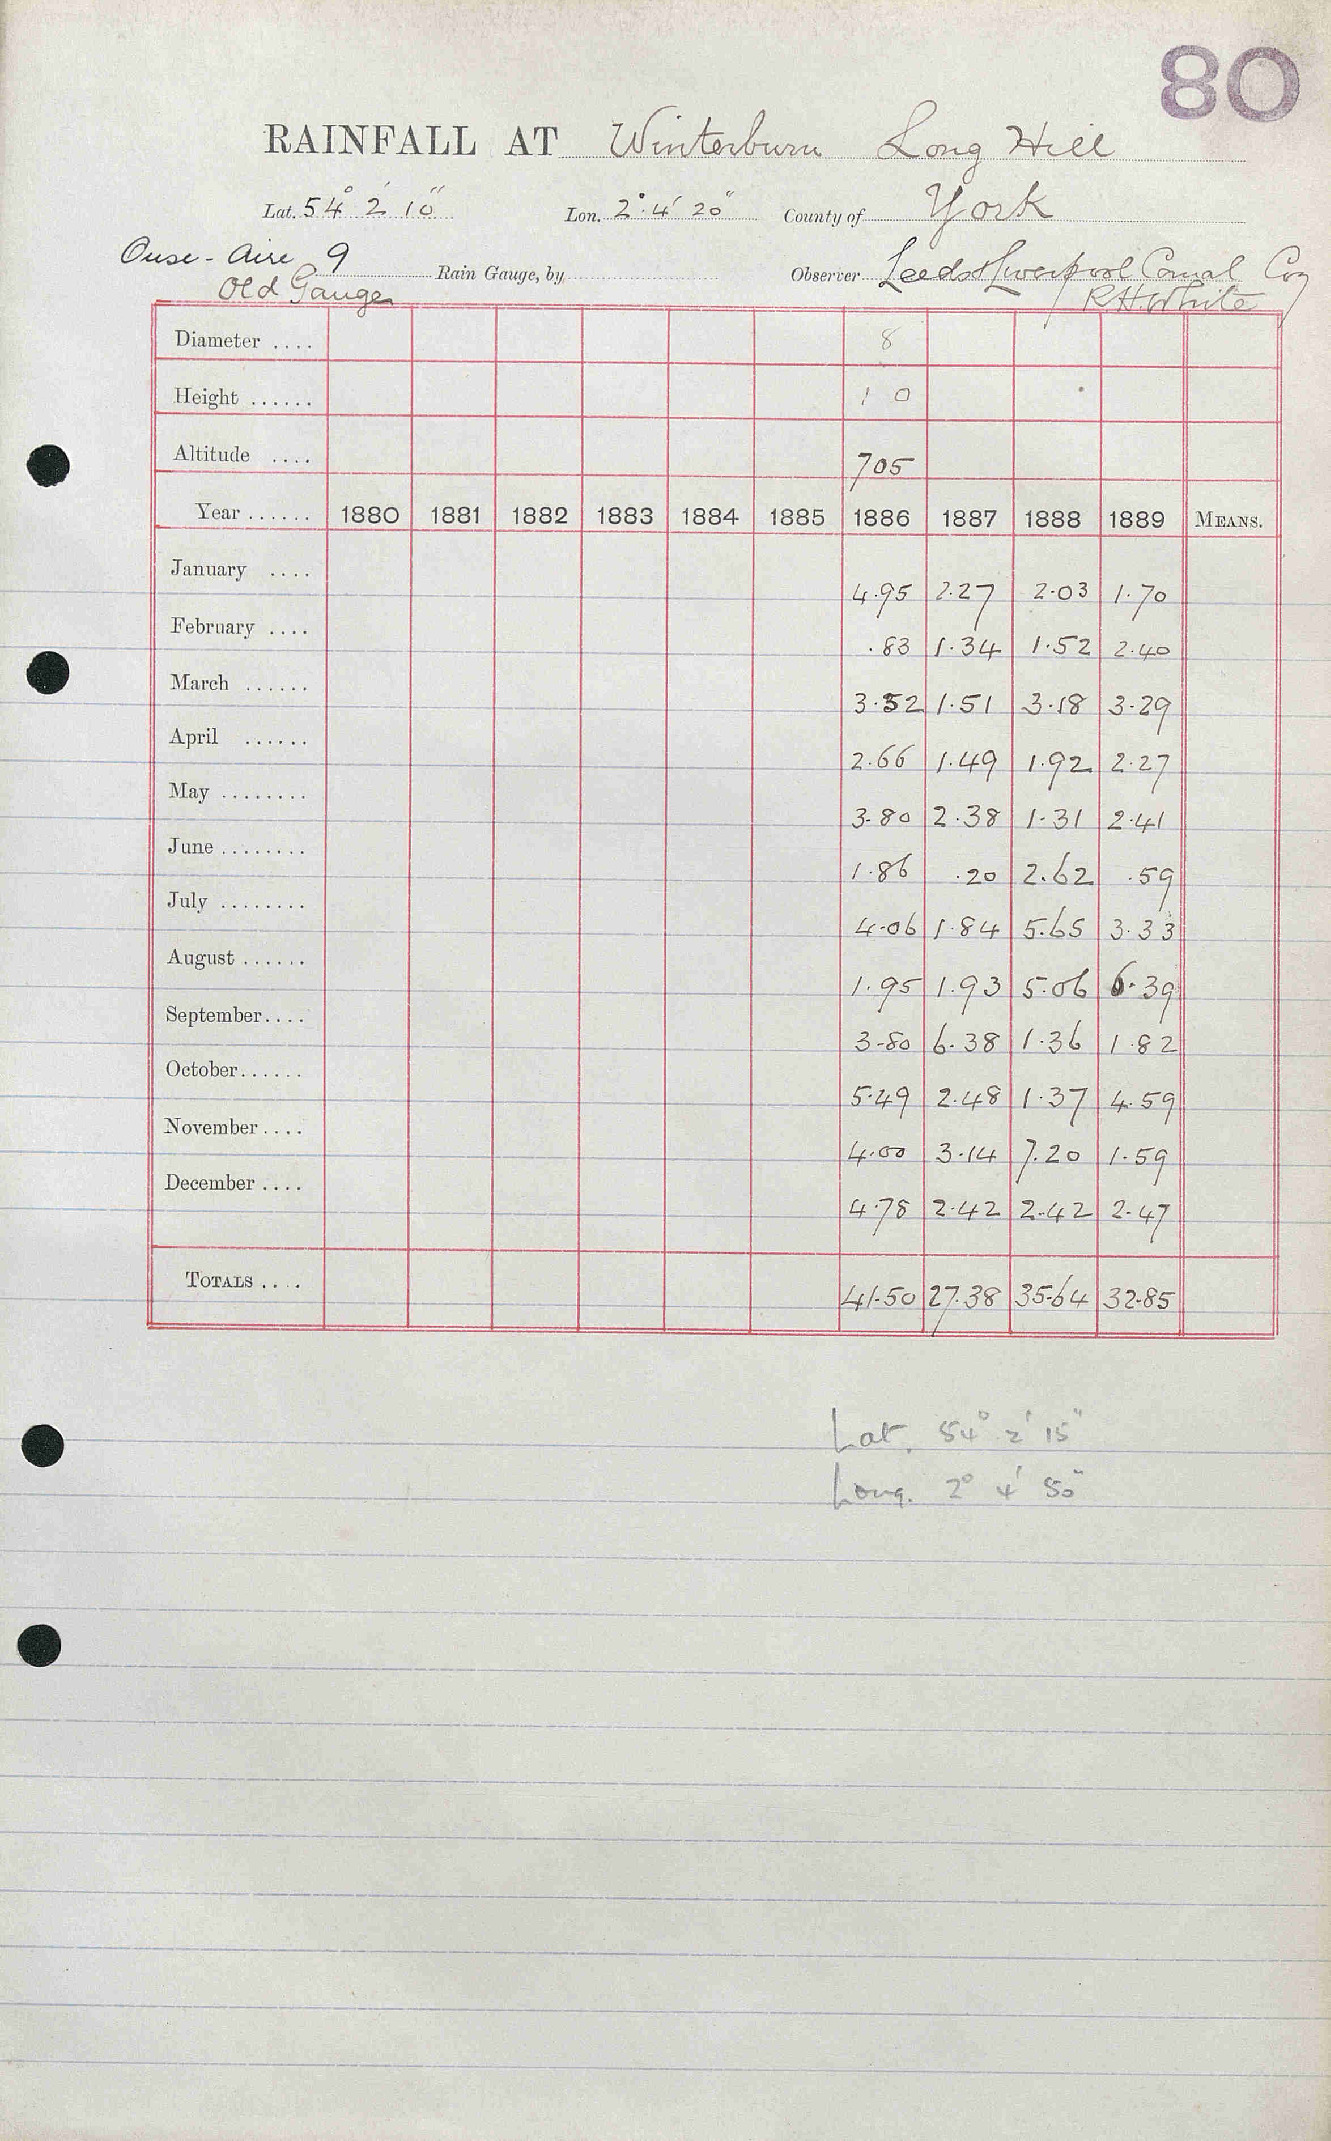 80
RAINFALL AT Winterburn Long Hill
Lat. 54° 2' 10" Lon. 2° 4' 20" County of York
Ouse - Aire 9 Rain Gauge, by Observer Leeds & Liverpool Canal Coy
Old Gauge R.H. White
Diameter .... 8
Height ...... 1 0
Altitude .... 705
Year ...... 1880 1881 1882 1883 1884 1885 1886 1887 1888 1889 MEANS.
January .... 4.95 2.27 2.03 1.70
February .... .83 1.34 1.52 2.40
March ...... 3.52 1.51 3.18 3.29
April ...... 2.66 1.49 1.92 2.27
May ........ 3.80 2.38 1.31 2.41
June ........ 1.86 .20 2.62 .59
July ........ 4.06 1.84 5.65 3.33
August ...... 1.95 1.93 5.06 6.39
September.... 3.80 6.38 1.36 1.82
October...... 5.49 2.48 1.37 4.59
November.... 4.00 3.14 7.20 1.59
December.... 4.78 2.42 2.42 2.47
TOTALS .... 41.50 27.38 35.64 32.85
Lat. 54° 2' 15"
Long. 2° 4' 50"